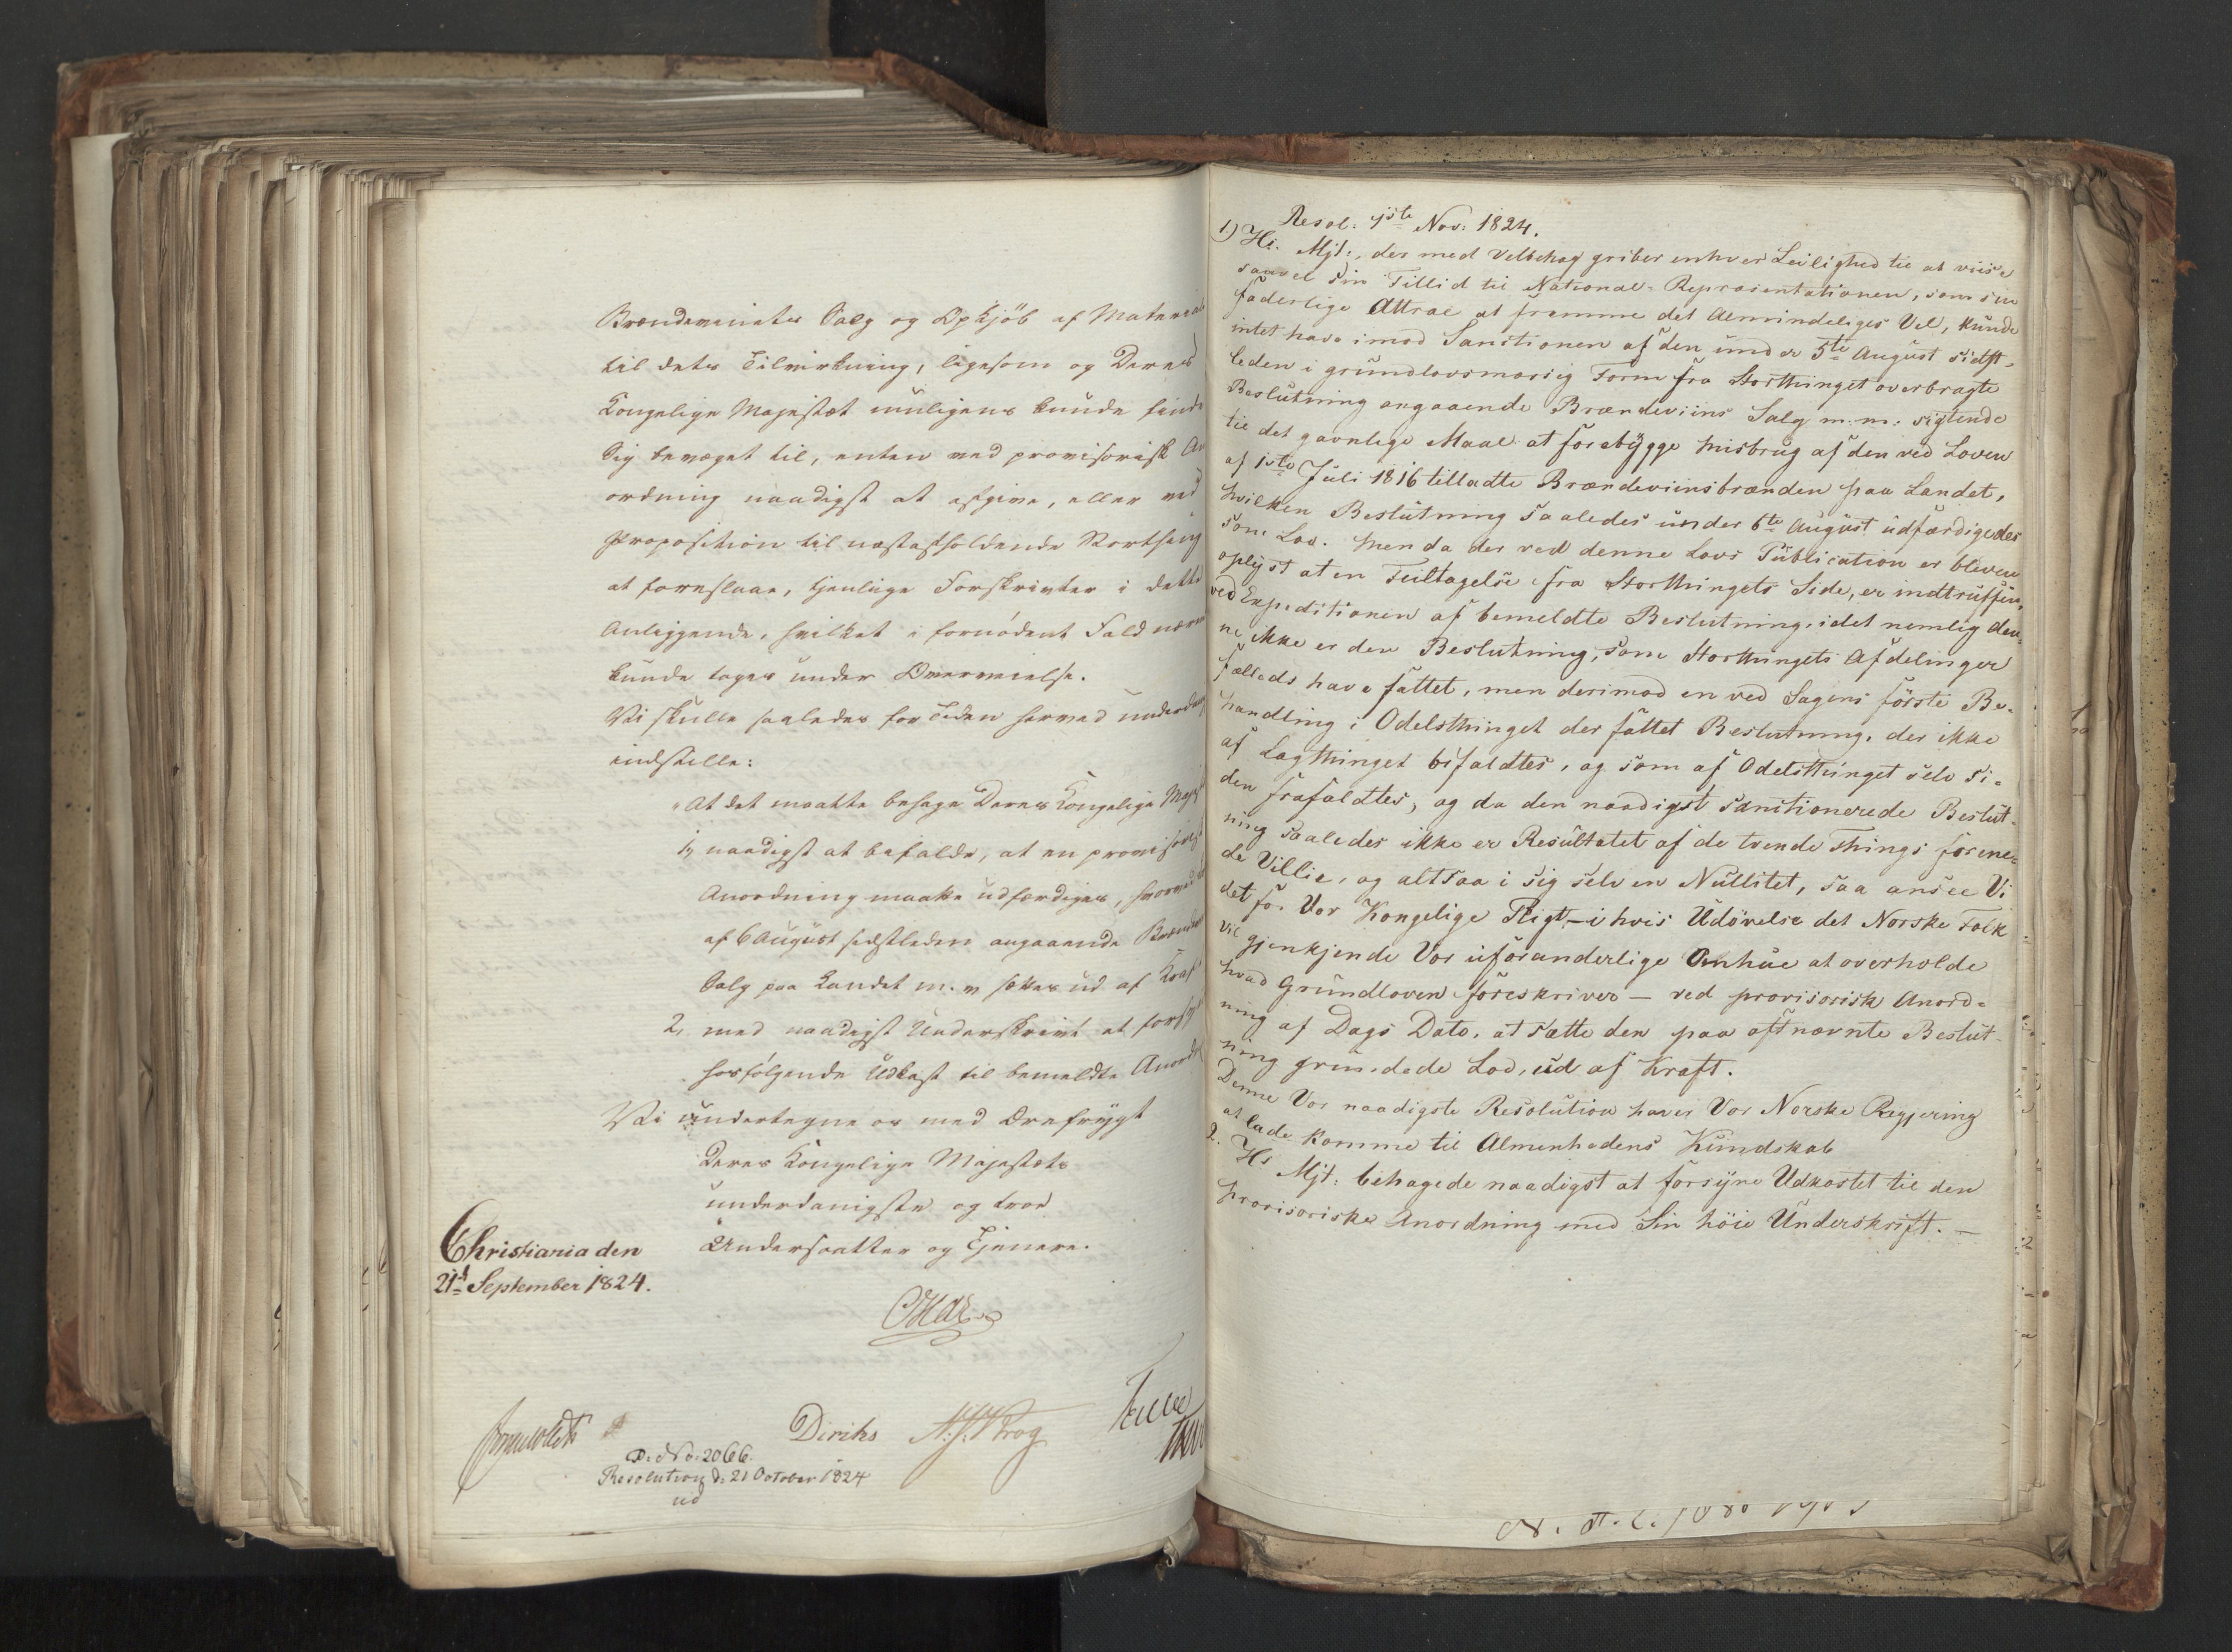 Brændeviinets Salg og Opkjöb af Material
til dets Tilvirkning, ligesom og Deres
Kongelige Majestæt muligens kunde finde
Sig bevæget til, enten ved provisorisk An
ordning naadigst at afgive, eller ved
Proposition til næstafholdende Storthing
at foreslaae, tjenlige Forskrivter i dette
Anliggende, hvilket i fornödent Fald nærm
kunde tages under Overveielse.
Vi skulle saaledes for Tiden herved underdan
indstille:
"At det maatte behage Deres Kongelige Majes
1, naadigst at befalde, at en provisorisk
Anordning maatte udfærdiges, hvorved
af 6 August sidstleden angaaende Brænde
Salg paa Landet m. m sættes ud af Kraf
2, med naadigst Underskrivt at forsy
hosfölgende Udkast til bemeldte Anord
Vi undertegne os med Ærefrygt
Deres Kongelige Majestæts
underdanigste og troe
Undersaatter og Tjenere.
Christiania den
21d September 1824.
Diriks
D. No: 2066.
Resolution d: 21 October 1824
ud
Resol: 1ste Nov: 1824.
1) Hs. Mjt:, der med Velbehag griber enhver Leilighed til at viise
saavel Sin Tillid til National-Repræsentationen, som sin
faderlige Attrae at fremme det Almindeliges Vel, kunde
intet have imod Sanctionen af den under 5te August sidst-
leden i grundlovsmæssig Form fra Storthinget overbragte
Beslutning angaaende Brændeviins Salg m: m: sigtende
til det gavnlige Maal: at forebygge Misbrug af den ved Loven
af 1ste Juli 1816 tilladte Brændeviinsbrænden paa Landet,
hvilken Beslutning saaledes under 6te August udfærdigedes
som Lov. Men da der ved denne Lovs Publication er bleven
oplyst at en Feiltagelse fra Storthingets Side, er indtruffen,
ved Expeditionen af bemeldte Beslutning, idet nemlig den-
ne ikke er den Beslutning, som Storthingets Afdelinger
fælleds have fattet, men derimod en ved Sagens förste Be-
handling i Odelsthinget der fattet Beslutning, der ikke
af Lagthinget bifaldtes, og som af Odelsthinget selv si-
den frafaldtes, og da den naadigst sanctionerede Beslut-
ning saaledes ikke er Resultatet af de tvende Things forene-
de Villie, og altsaa i sig selv en Nullitet, saa ansee Vi
det for Vor Kongelige Pligt - i hvis Udövelse det Norske Folk
vil gjenkjende Vor uforanderlige Omhue at overholde
hvad Grundloven foreskriver - ved provisorisk Anord-
ning af Dags Dato, at sætte den paa oftnævnte Beslut-
ning grundede Lov, ud af Kraft.
Denne Vor naadigste Resolution haver Vor Norske Regjering
at lade komme til Almenhedens Kundskab
2. Hs Mjt: behagede naadigst at forsyne Udkastet til den
provisoriske Anordning med Sin höie Underskrift. -